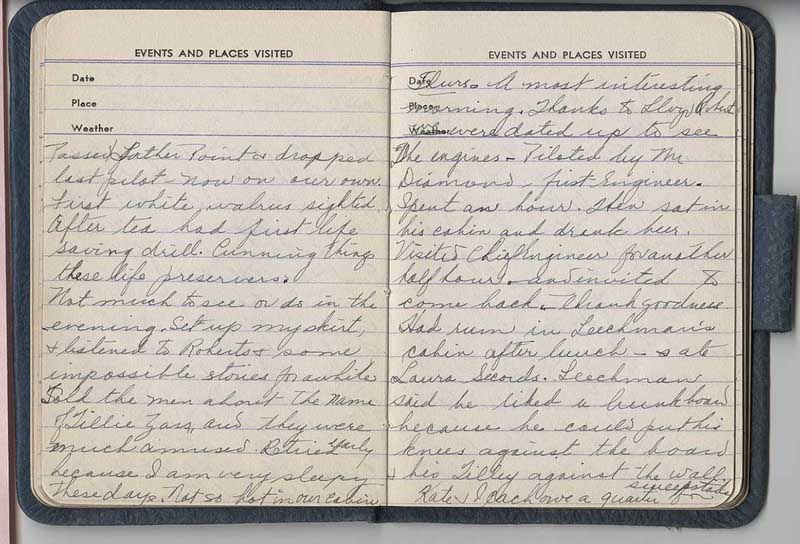 EVENTS AND PLACES VISITED
Date
Place
Weather
Passed Father Point & dropped
last pilot - now on our own.
First white walrus sighted.
After tea had first life
saving drill. Cunning things
these life preservers.
Not much to see or do in the
evening. Set up my skirt,
& listened to Roberts & some
impossible stories for awhile
Told the men about the name
of Tillie Zass, and they were
much amused. Retired early
because I am very sleepy
these days. Not so hot in our cabin
EVENTS AND PLACES VISITED
Date Thurs. A most interesting
Place morning. Thanks to Lloyd Robert
Weather we were dated up to see
The engines - Piloted by Mr
Diamond, first Engineer.
Spent an hour. Then sat in
his cabin and drank beer.
Visited Chief Engineer for another
half hour, and invited to
come back - Thank goodness
Had rum in Leechman's
cabin after lunch - & ate
Laura Secords. Leechman
said he liked a bunkboard
because he could put his
knees against the board
& his Tilley against the wall.
Kate & I each owe a quarter for
sweepstake